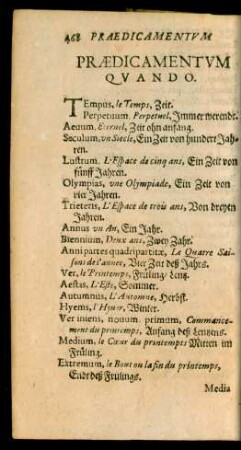 468 PRÆDICAMENTVM
PRÆDICAMENTVM
QVANDO.
TEmpus, le Temps, Zeit.
Perpetuum, Perpetuel, Immerwerendt.
Aeuum, Eternel, Zeit ohn anfang.
Seculum, vn Siecle, Ein Zeit von hundert Jah-
ren.
Lustrum, L'Espace de cinq ans, Ein Zeit von
fünff Jahren.
Olympias, vne Olympiade, Ein Zeit von
vier Jahren.
Trieteris, L'Espace de trois ans, Von dreyen
Jahren.
Annus vn An, Ein Jahr.
Biennium, Deux ans, Zwey Jahr.
Anni partes quadripartitæ, Le Quatre Sai-
sons de l'annee, Vier Zeit deß Jahrs.
Ver, le Printemps, Früling, Lentz.
Aestas, L'Esté, Sommer.
Autumnus, L'Automne, Herbst.
Hyems, l'Hyuer, Winter.
Ver iniens, nouum, primum, Commance-
ment du printemps, Anfang deß Lentzens.
Medium, le Cœur du printemps Mitten im
Früling.
Extremum, le Bout ou la fin du printemps,
Endt deß Frülings.
Media